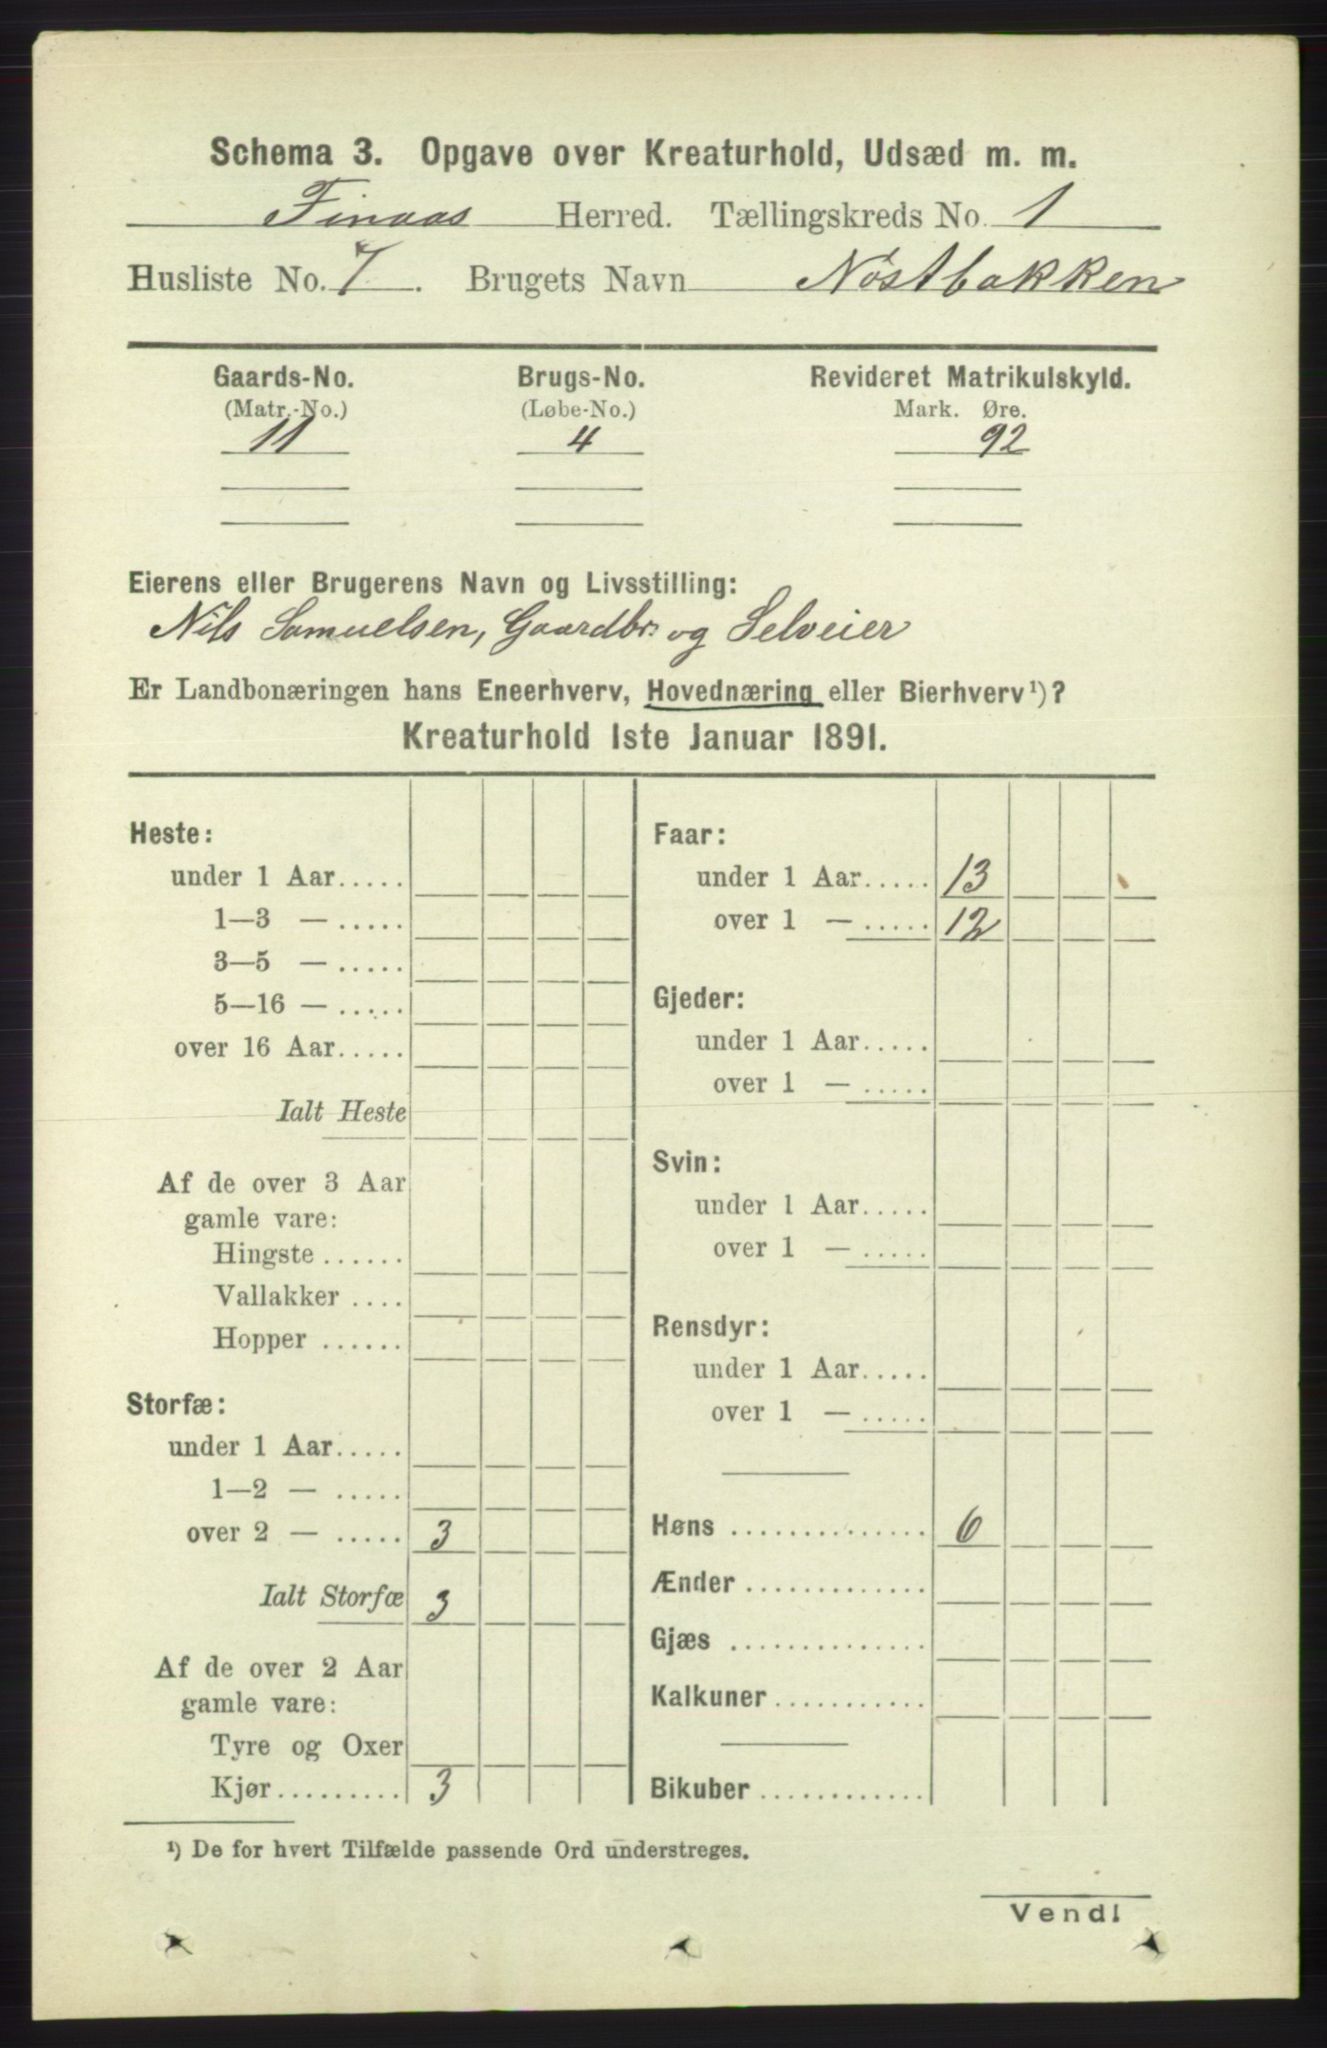 Schema 3. Opgave over Kreaturhold, Udsæd m. m.
Finaas Herred. Tællingskreds No. 1
Husliste No. 7. Brugets Navn Nøstbakken
Gaards-No. Brugs-No. Revideret Matrikulskyld.
(Matr.-No.) (Løbe-No.) Mark. Øre.
11 4 92
Eierens eller Brugerens Navn og Livsstilling:
Nils Samuelsen, Gaardbr. og Selveier
Er Landbonæringen hans Eneerhverv, Hovednæring eller Bierhverv¹)?
Kreaturhold 1ste Januar 1891.
Heste:
under 1 Aar.....
1—3 — .....
3—5 — .....
5—16 — .....
over 16 Aar.....
Ialt Heste
Af de over 3 Aar
gamle vare:
Hingste ......
Vallakker ....
Hopper ......
Storfæ:
under 1 Aar.....
1—2 — .....
over 2 — ..... 3
Ialt Storfæ 3
Af de over 2 Aar
gamle vare:
Tyre og Oxer
Kjør......... 3
Faar:
under 1 Aar..... 13
over 1 — ..... 12
Gjeder:
under 1 Aar.....
over 1 — .....
Svin:
under 1 Aar.....
over 1 — .....
Rensdyr:
under 1 Aar.....
over 1 — .....
Høns ............... 6
Ænder ..............
Gjæs ...............
Kalkuner ...........
Bikuber ............
¹) De for hvert Tilfælde passende Ord understreges.
Vend!